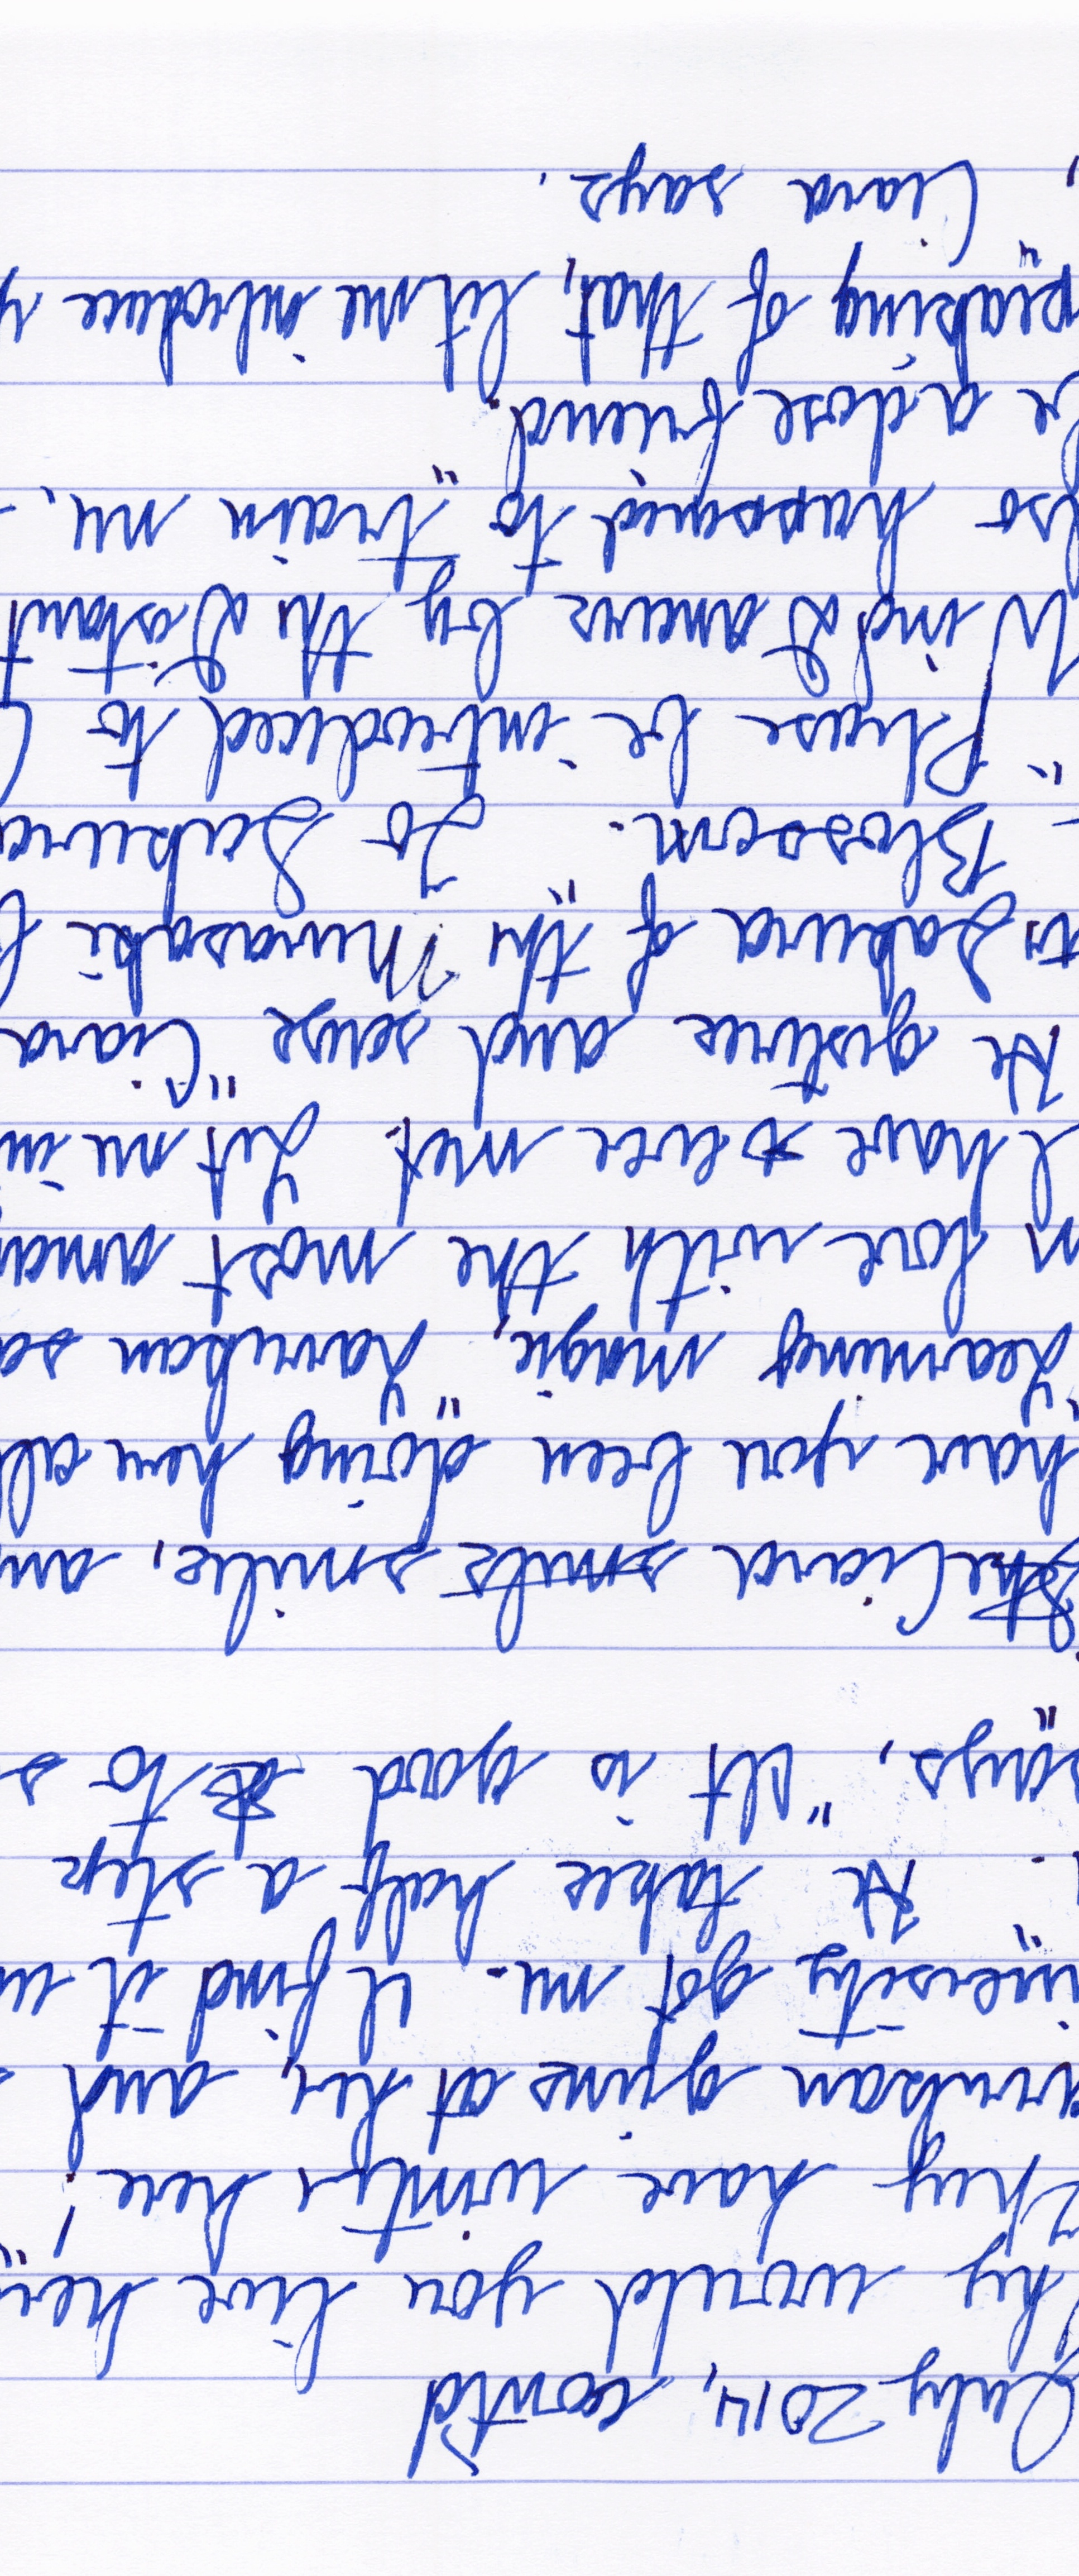 July 2014, cont'd
hy would you live here
They have winter here!"
arukan grins at her, and
iversity got me. I find it
. He takes half a step
says, "It is good to s
Ciara smile, an
have you been doing here all
"Learning magic," Larukan sa
n love with the most amaz
I have ever met. Let me in
He gestures and sause "Ciara
Sakura of the Murasaki
Blossom." To Sakura
"Please be introduced to C
Wind Dancer by the Distant
lso happened to train me,
be a close friend."
peaking of that, let me introduce y
, Ciara says.